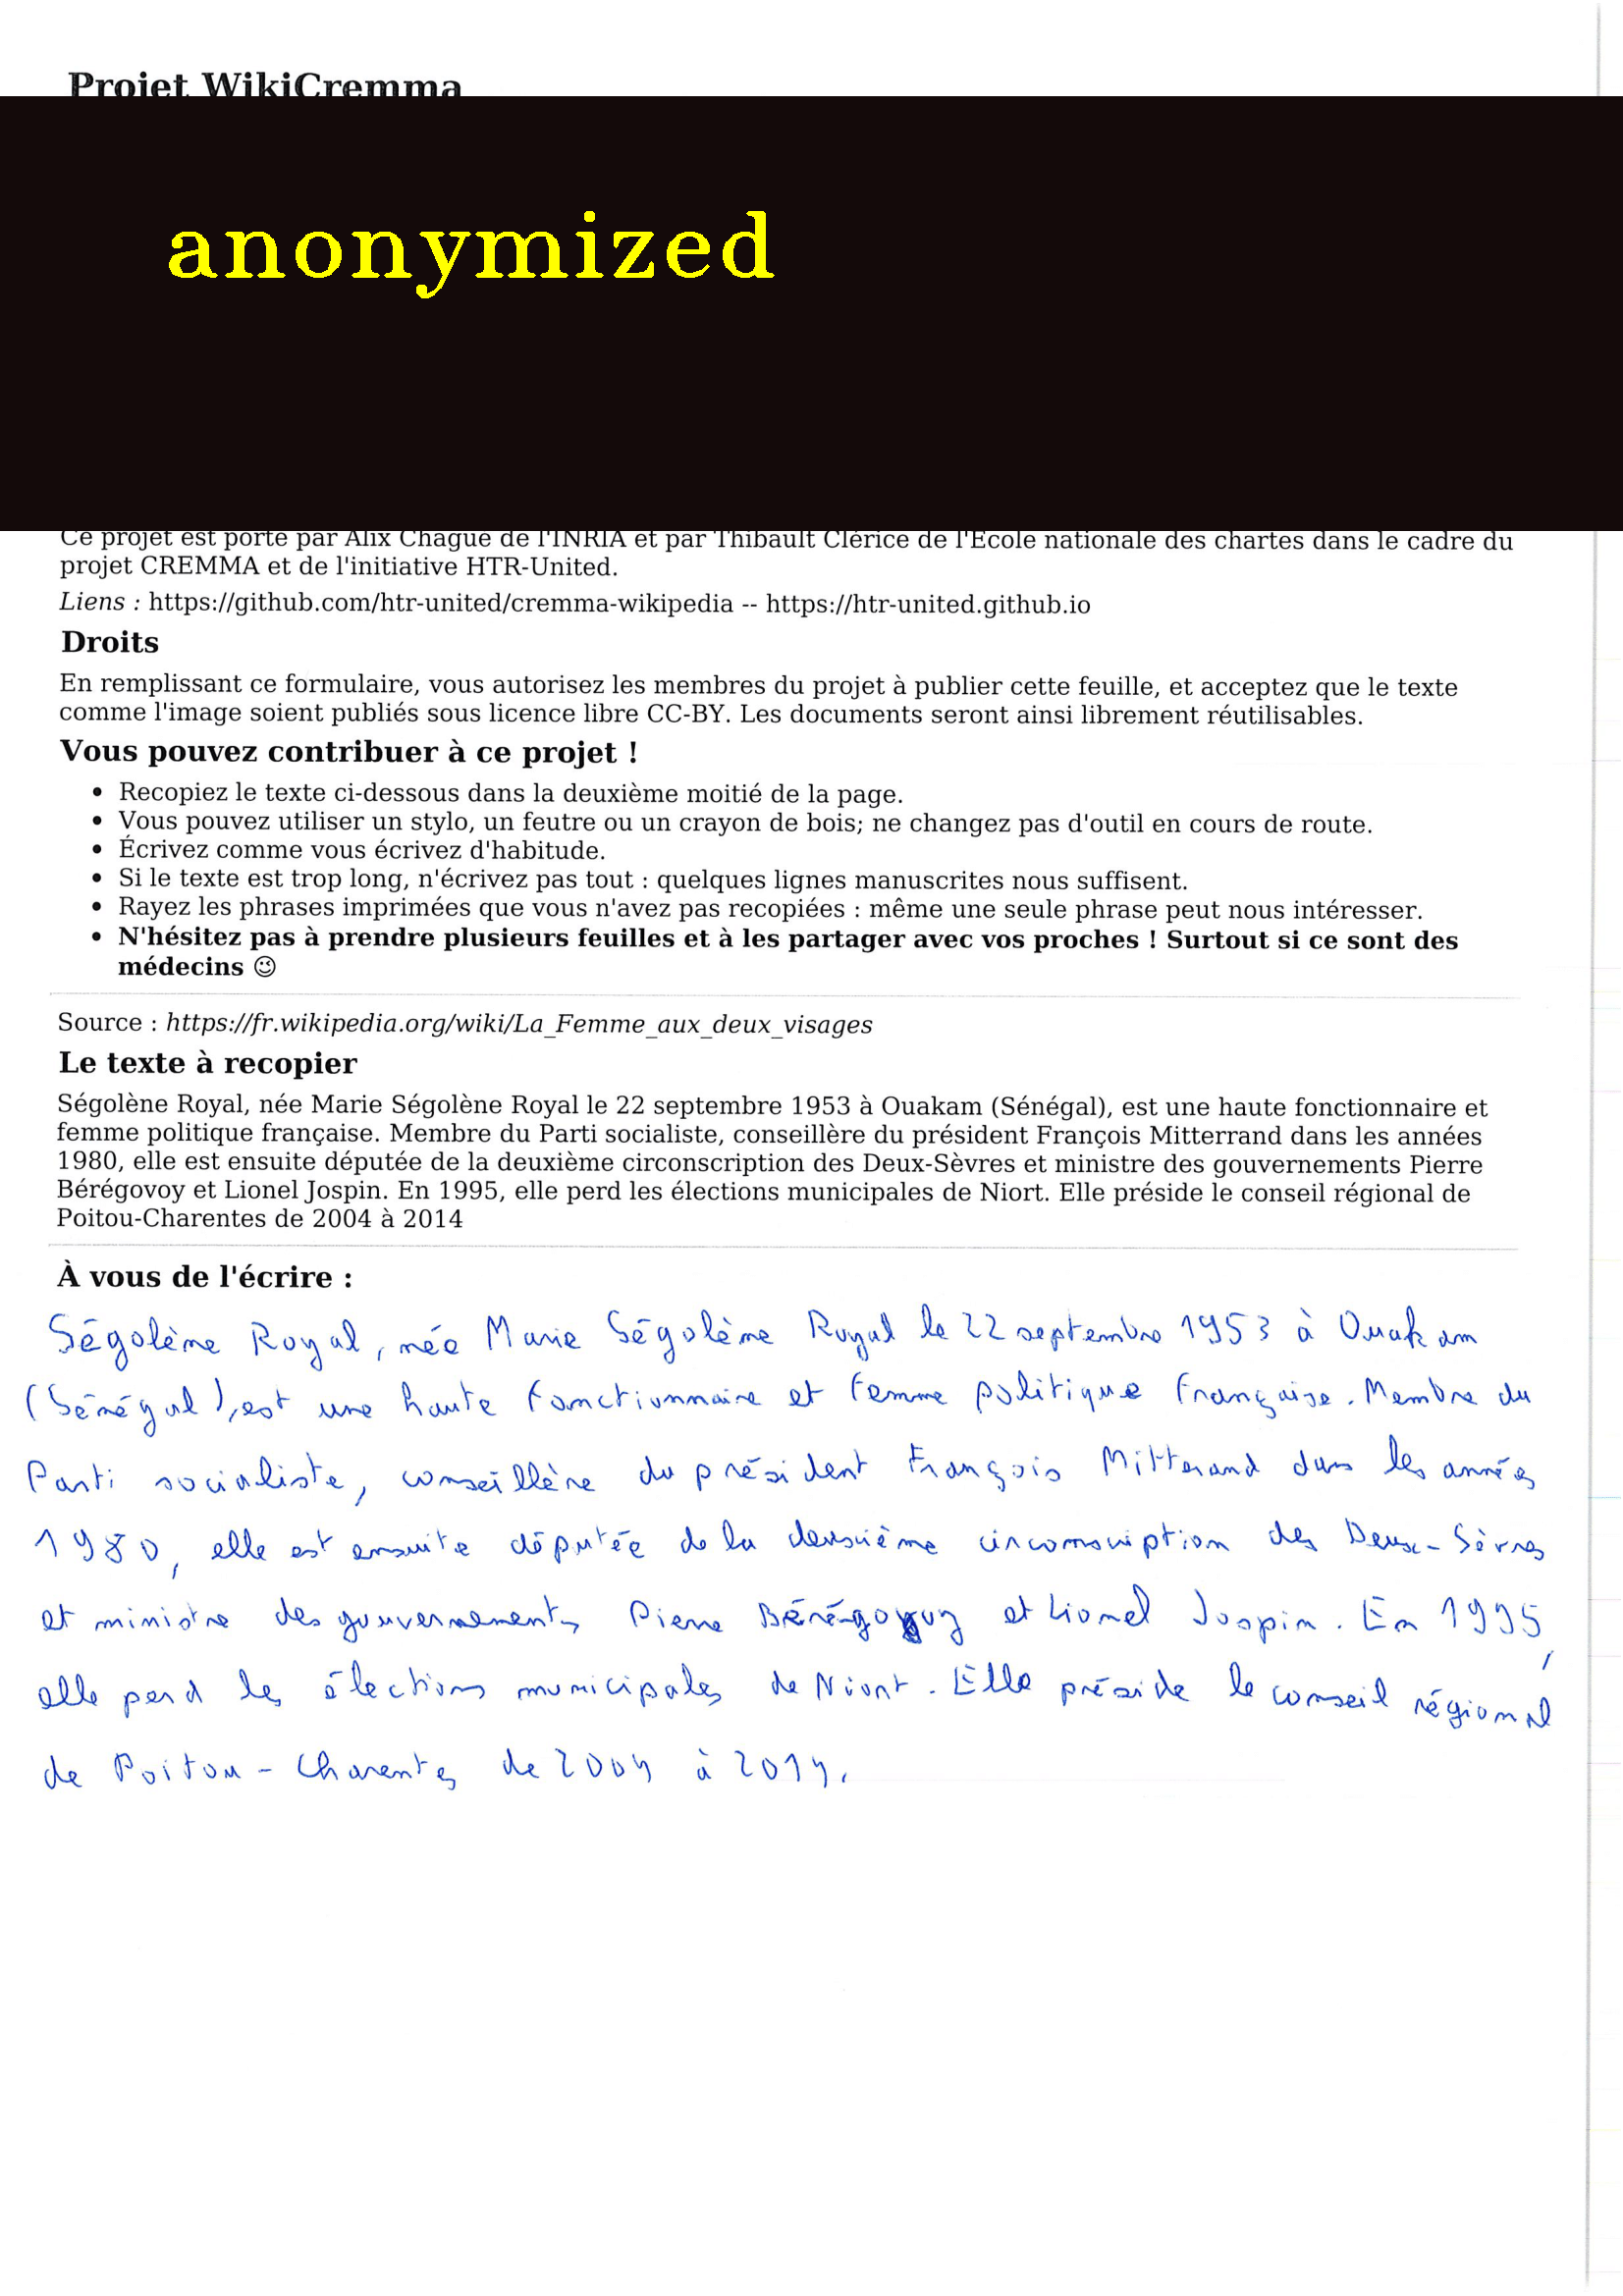 Projet WikiCremma
anonymized
Ce projet est porté par Alix Chagué de l'INRIA et par Thibault Clérice de l'École nationale des chartes dans le cadre du
projet CREMMA et de l'initiative HTR-United.
Liens : https://github.com/htr-united/cremma-wikipedia -- https://htr-united.github.io
Droits
En remplissant ce formulaire, vous autorisez les membres du projet à publier cette feuille, et acceptez que le texte
comme l'image soient publiés sous licence libre CC-BY. Les documents seront ainsi librement réutilisables.
Vous pouvez contribuer à ce projet !
• Recopiez le texte ci-dessous dans la deuxième moitié de la page.
• Vous pouvez utiliser un stylo, un feutre ou un crayon de bois; ne changez pas d'outil en cours de route.
• Écrivez comme vous écrivez d'habitude.
• Si le texte est trop long, n'écrivez pas tout : quelques lignes manuscrites nous suffisent.
• Rayez les phrases imprimées que vous n'avez pas recopiées : même une seule phrase peut nous intéresser.
• N'hésitez pas à prendre plusieurs feuilles et à les partager avec vos proches ! Surtout si ce sont des
médecins 😉
Source : https://fr.wikipedia.org/wiki/La_Femme_aux_deux_visages
Le texte à recopier
Ségolène Royal, née Marie Ségolène Royal le 22 septembre 1953 à Ouakam (Sénégal), est une haute fonctionnaire et
femme politique française. Membre du Parti socialiste, conseillère du président François Mitterrand dans les années
1980, elle est ensuite députée de la deuxième circonscription des Deux-Sèvres et ministre des gouvernements Pierre
Bérégovoy et Lionel Jospin. En 1995, elle perd les élections municipales de Niort. Elle préside le conseil régional de
Poitou-Charentes de 2004 à 2014
À vous de l'écrire :
Ségolène Royal, née Marie Ségolène Royal le 22 septembre 1953 à Ouakam
(Sénégal), est une haute fonctionnaire et femme politique française. Membre du
Parti socialiste, conseillère du président François Mitterand dans les années
1980, elle est ensuite députée de la deuxième circonscription des Deux-Sèvres
et ministre des gouvernements Pierre Bérégovoy et Lionel Jospin. En 1995,
elle perd les élections municipales de Niort. Elle préside le conseil régional
de Poitou-Charentes de 2004 à 2014.